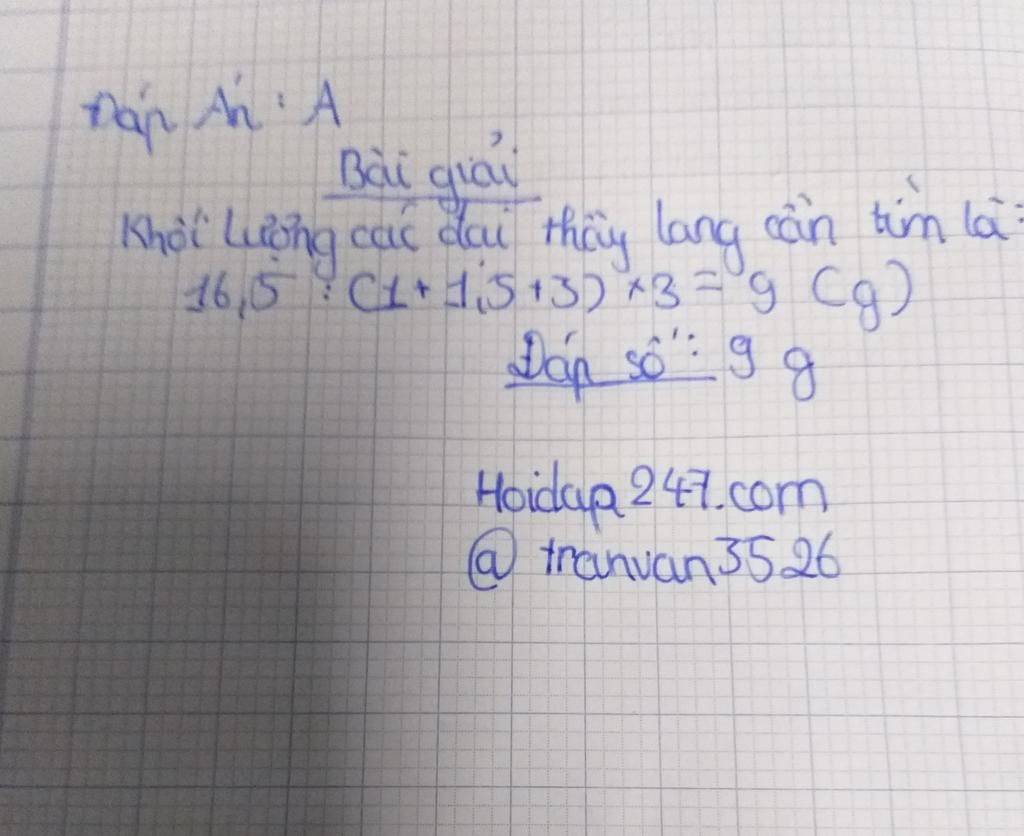 Đáp Án : A
Bài giải
Khối lượng các đại thầy lang cần tìm là :
16,5 : (1 + 1,5 + 3) × 3 = 9 (g)
Đáp số : 9 g
Hoidap247.com
@ tranvan3526